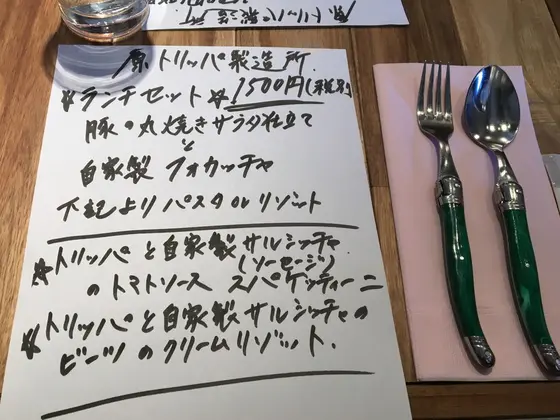 原トリッパ製造所
原トリッパ製造所.
*ランチセット* 1500円(税別)
豚の丸焼きサラダ仕立て
と
自家製 フォカッチャ
下記よりパスタorリゾット
*トリッパと自家製サルシッチャ
(ソーセージ)
のトマトソース スパゲッティーニ
*トリッパと自家製サルシッチャの
ビーツのクリームリゾット.